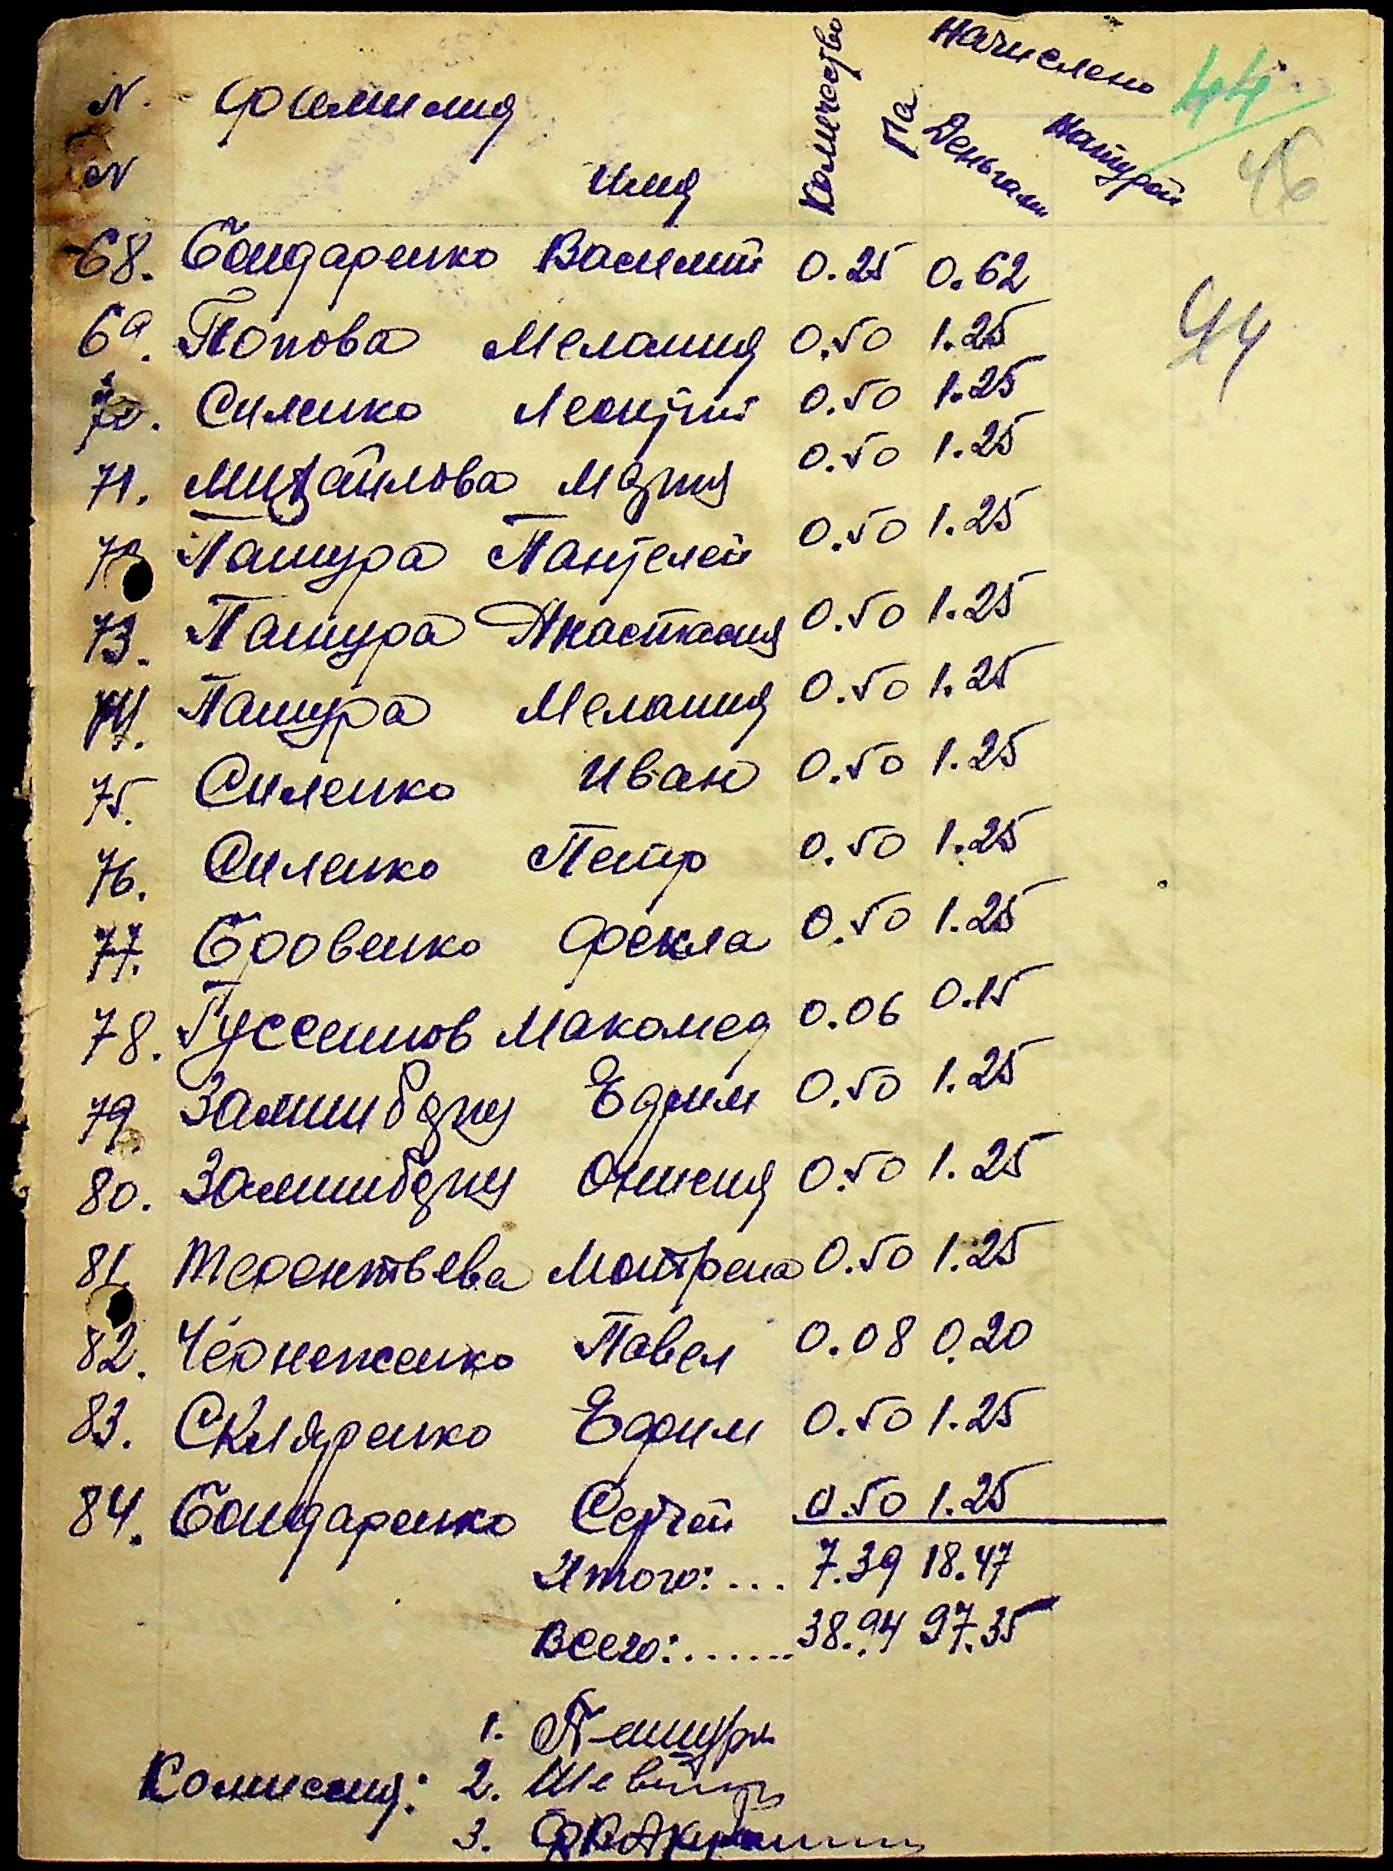 N. Фамилия Количество Га Начислено 44
N Имя Деньгами Натурой 46
68. Бондаренко Василий 0.25 0.62
44
69. Попова Мелания 0.50 1.25
70. Силенко Леонтий 0.50 1.25
71. Михайлова Мария 0.50 1.25
72 Пашура Пантелей 0.50 1.25
73. Пашура Анастасия 0.50 1.25
74. Пашура Мелания 0.50 1.25
75. Силенко Иван 0.50 1.25
76. Силенко Петр 0.50 1.25
77. Бровенко Фекла 0.50 1.25
78. Гуссеинов Макомед 0.06 0.15
79. Ефим 0.50 1.25
80. Онисия 0.50 1.25
81 Матрена 0.50 1.25
82. Павел 0.08 0.20
83. Скляренко Ефим 0.50 1.25
84. Бондаренко Сергей 0.50 1.25
Итого: ... 7.39 18.47
Всего: ...... 38.94 97.35
1. Пашура
Комиссия: 2.
3.